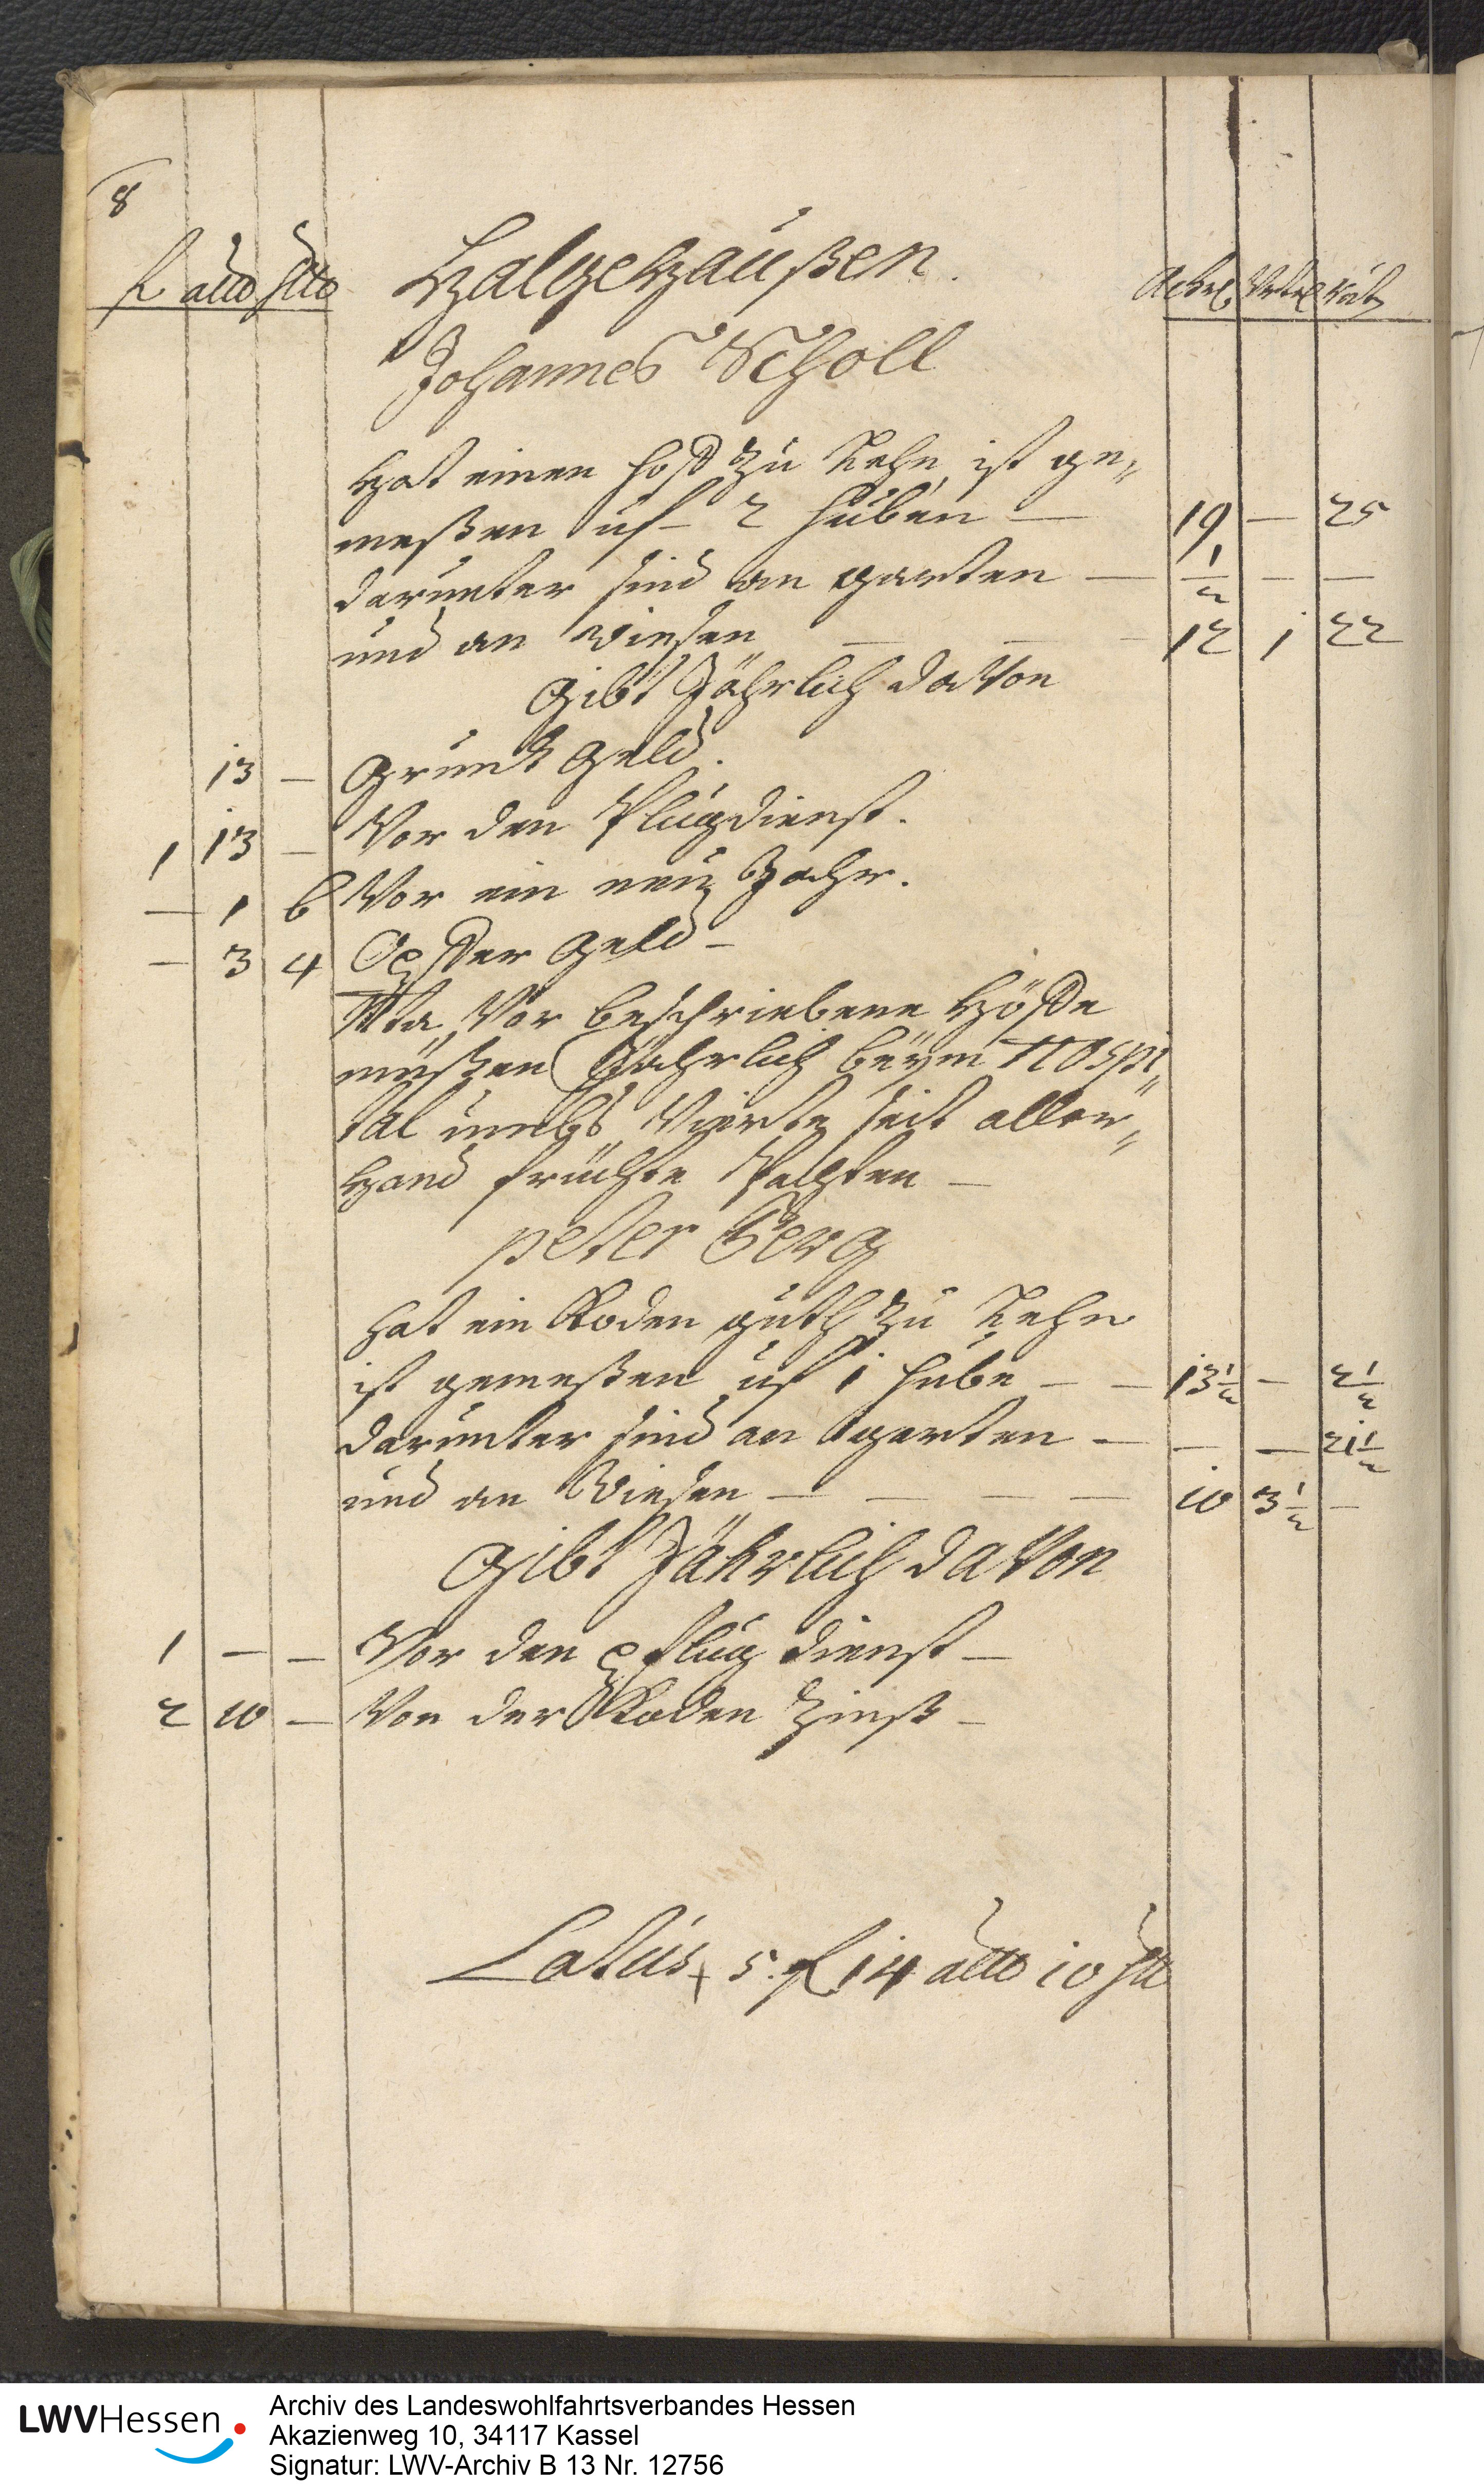 8
fl alb hlr Halgehaußen. Acker Virtel Rut
Johannes Scholl
Hat einen Hoff zu Lehn ist ge„
meßen uf 2 Huben — 19 — 25
darunter sind an garten — 1/2 — —
und an Wiesen — — — 12 1 22
Gibt Jährlich davon
13 — Grund Geld.
1 13 — Vor den Pflugdienst.
— 1 6 Vor ein neu Jahr.
— 3 4 Opffer Geld —
Vor beschriebene Höffe
müßen Jährlich beym Hospi„
tal umbs Vierte seil aller„
Hand früchte
Peter Berg
Hat ein Roden guth zu Lehn
ist gemeßen uf 1 Hube — — 13 1/2 — 2 1/2
darunter sind an garten — — — 21 1/2
und an Wiesen — — — — 10 3 1/2 —
Gibt Jährlich davon
1 — — Vor den pflug dienst —
2 10 — Von der Roden Zinß —
Latus 5. fl 14 alb 10 hlr
LWVHessen
Archiv des Landeswohlfahrtsverbandes Hessen
Akazienweg 10, 34117 Kassel
Signatur: LWV-Archiv B 13 Nr. 12756